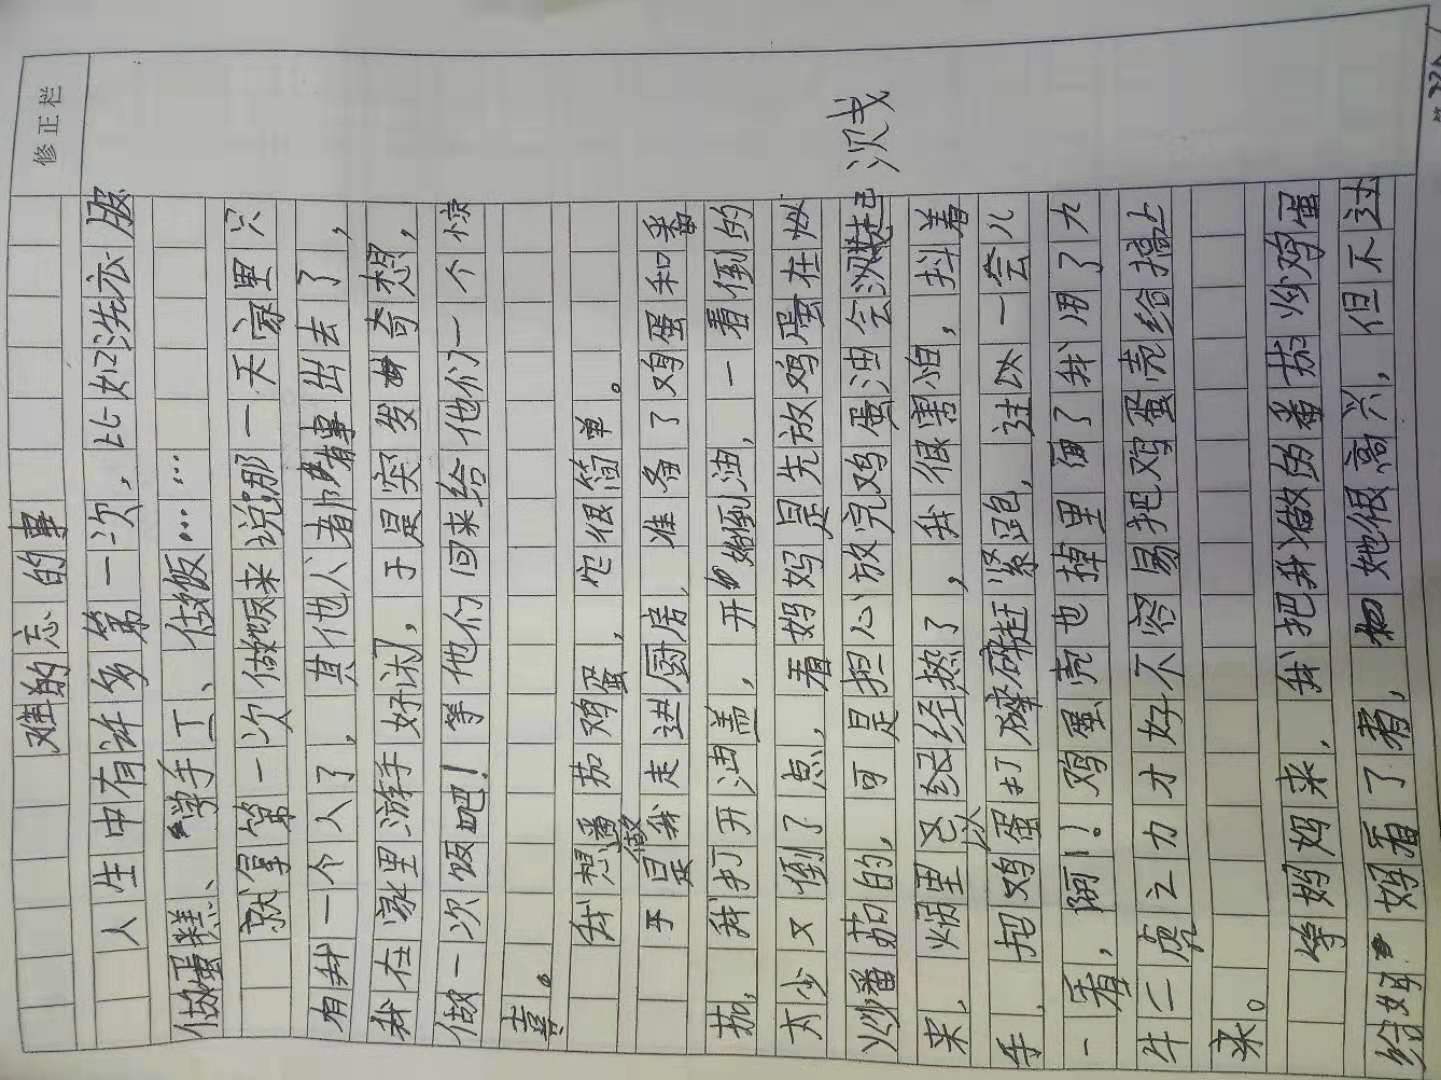 修正栏
难的忘的事
人生中有许多第一次，比如洗衣服
做蛋糕、学手工、做饭……
就拿第一次做饭来说，那一天家里只
有我一个人了，其他人都有事出去了，
我在家里游手好闲，于是突发奇想，
做一次饭吧！等他们回来给他们一个惊
喜。
我想做番茄鸡蛋，它很简单。
于是我走进厨房，准备了鸡蛋和番
茄，我打开油盖，开始倒油，一看倒的
太少又倒了点，看妈妈是先放鸡蛋在炒
炒番茄的，可是担心放完鸡蛋油会溅起
溅
来，锅里已经热了，我很害怕，抖着
手，把鸡蛋打碎赶紧跑，过以一会儿
一看，啊！鸡蛋壳也掉里面了我用了九
牛二虎之力才好不容易把鸡蛋壳给搞上
来。
等妈妈来，我把我做的番茄炒鸡蛋
给妈妈看了看，她很高兴，但不过